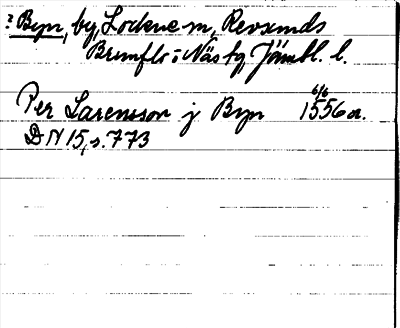 ? Byn, by, Lockne sn, Revsunds
Brunflo o Näs tg Jämtl. l.
6/6
Per Larensson j Byn 1556 or.
DN 15, s. 773